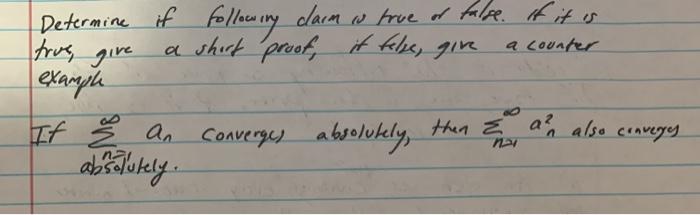 Determine if following claim is true or false. If it is
true, give a short proof, if false, give a counter
example
If ∞∑n=1 an converges absolutely, then ∞∑n=1 a²n also converges
absolutely.